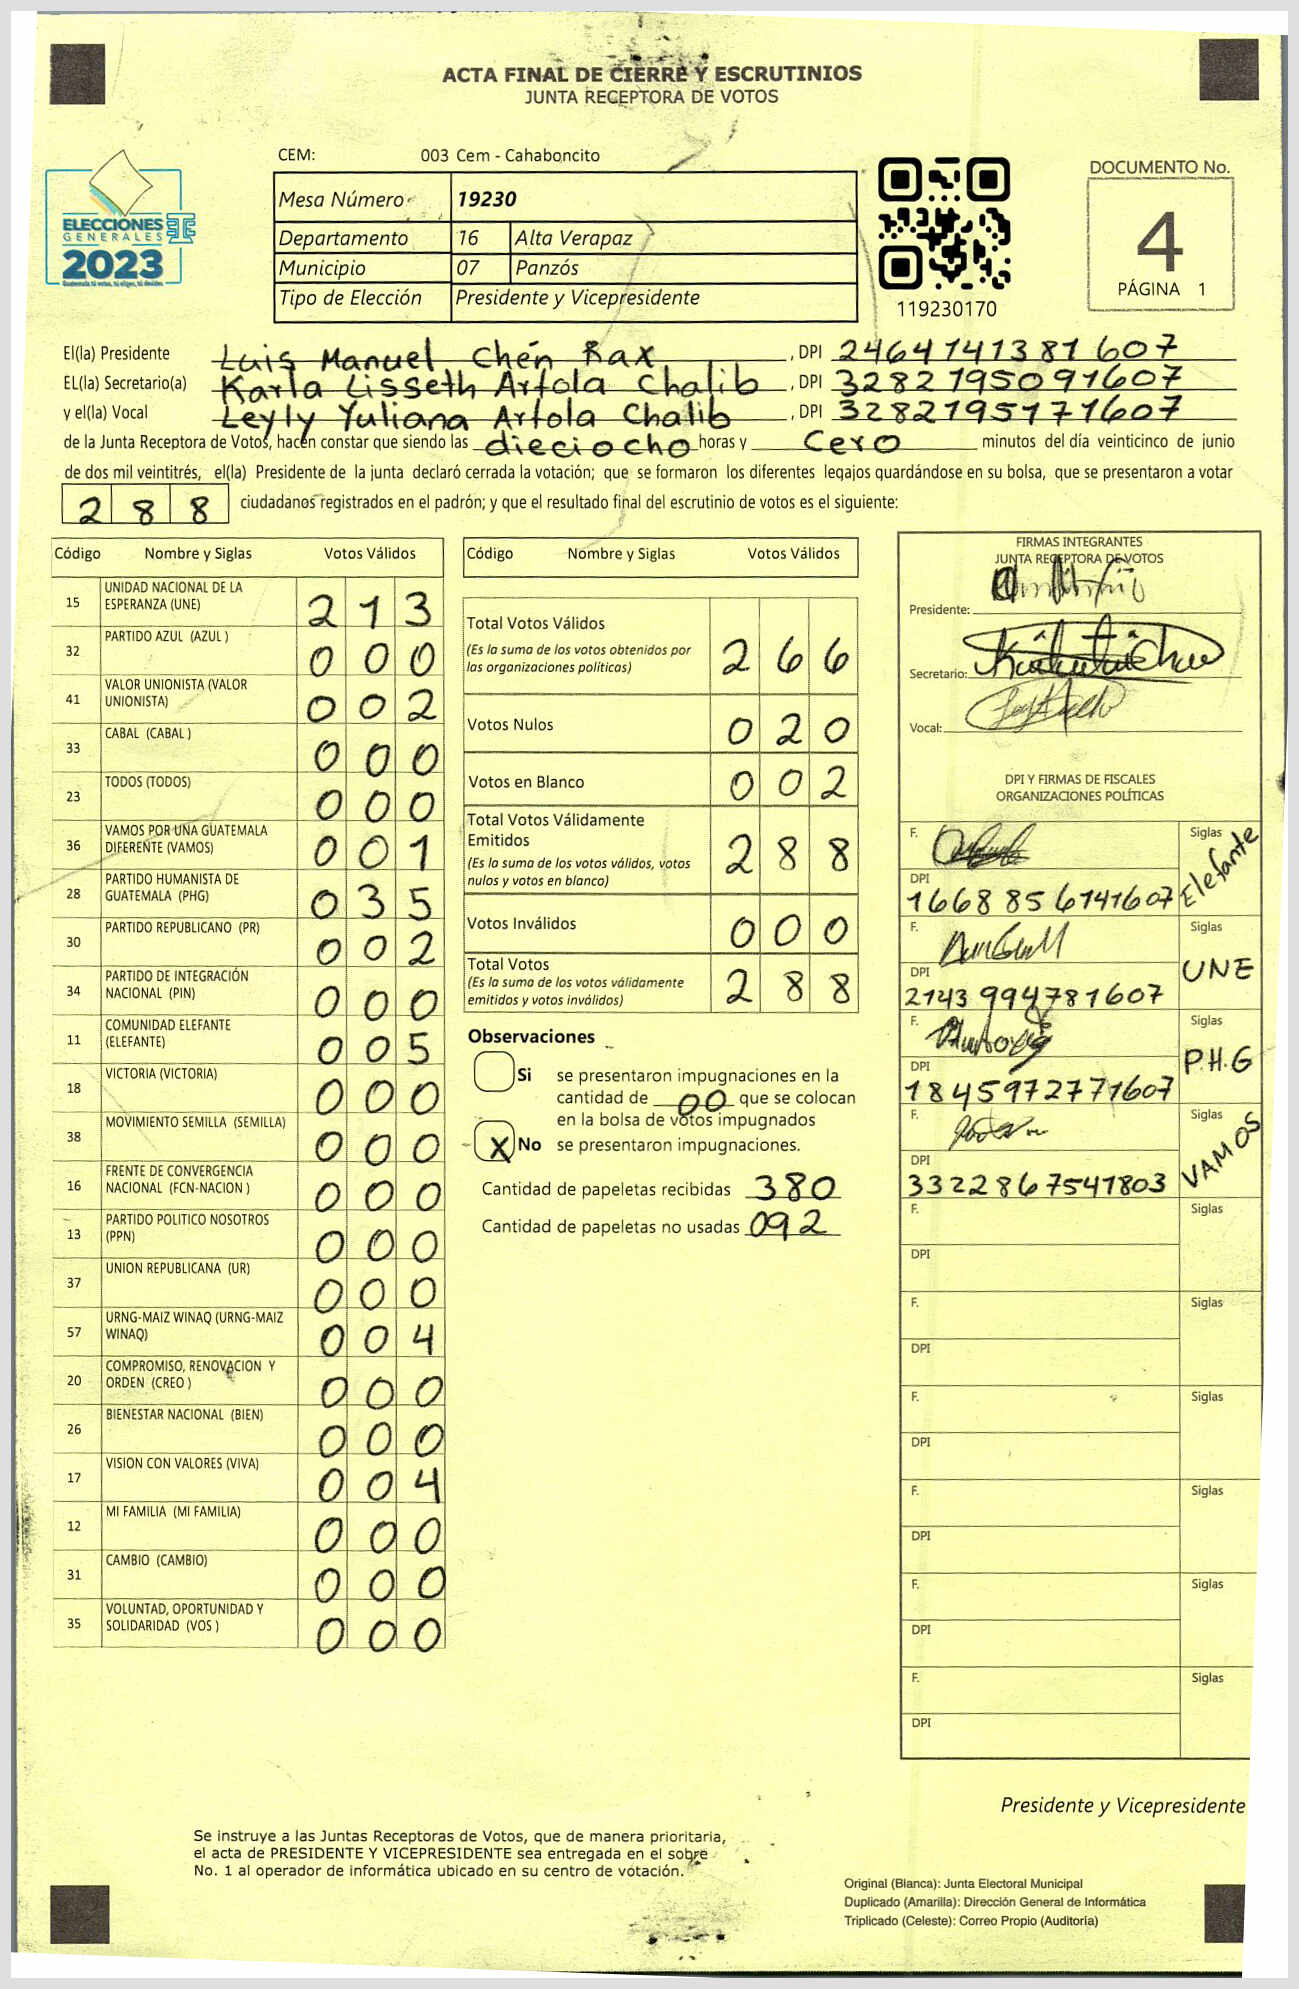 ACTA FINAL DE CIERRE Y ESCRUTINIOS
JUNTA RECEPTORA DE VOTOS
CEM: 003 Cem - Cahaboncito
ELECCIONES
GENERALES
2023
Mesa Número 19230
Departamento 16 Alta Verapaz
Municipio 07 Panzós
Tipo de Elección Presidente y Vicepresidente
119230170
DOCUMENTO No.
4
PÁGINA 1
El(la) Presidente Luis Manuel Chén Rax, DPI 2464141381607
EL(la) Secretario(a) Karla Lisseth Artola Chalib, DPI 3282195091607
y el(la) Vocal Leyly Yuliana Artola Chalib, DPI 3282195171607
de la Junta Receptora de Votos, hacen constar que siendo las dieciocho horas y Cero minutos del día veinticinco de junio
de dos mil veintitrés, el(la) Presidente de la junta declaró cerrada la votación; que se formaron los diferentes legajos quardándose en su bolsa, que se presentaron a votar
288 ciudadanos registrados en el padrón; y que el resultado final del escrutinio de votos es el siguiente:
Código Nombre y Siglas Votos Válidos
15 UNIDAD NACIONAL DE LA ESPERANZA (UNE) 213
32 PARTIDO AZUL (AZUL ) 000
41 VALOR UNIONISTA (VALOR UNIONISTA) 002
33 CABAL (CABAL ) 000
23 TODOS (TODOS) 000
36 VAMOS POR UNA GUATEMALA DIFERENTE (VAMOS) 001
28 PARTIDO HUMANISTA DE GUATEMALA (PHG) 035
30 PARTIDO REPUBLICANO (PR) 002
34 PARTIDO DE INTEGRACIÓN NACIONAL (PIN) 000
11 COMUNIDAD ELEFANTE (ELEFANTE) 005
18 VICTORIA (VICTORIA) 000
38 MOVIMIENTO SEMILLA (SEMILLA) 000
16 FRENTE DE CONVERGENCIA NACIONAL (FCN-NACION ) 000
13 PARTIDO POLITICO NOSOTROS (PPN) 000
37 UNION REPUBLICANA (UR) 000
57 URNG-MAIZ WINAQ (URNG-MAIZ WINAQ) 004
20 COMPROMISO, RENOVACION Y ORDEN (CREO ) 000
26 BIENESTAR NACIONAL (BIEN) 000
17 VISION CON VALORES (VIVA) 004
12 MI FAMILIA (MI FAMILIA) 000
31 CAMBIO (CAMBIO) 000
35 VOLUNTAD, OPORTUNIDAD Y SOLIDARIDAD (VOS ) 000
Código Nombre y Siglas Votos Válidos
Total Votos Válidos 266
(Es la suma de los votos obtenidos por
las organizaciones políticas)
Votos Nulos 020
Votos en Blanco 002
Total Votos Válidamente
Emitidos 288
(Es la suma de los votos válidos, votos
nulos y votos en blanco)
Votos Inválidos 000
Total Votos 288
(Es la suma de los votos válidamente
emitidos y votos inválidos)
Observaciones
Si se presentaron impugnaciones en la
cantidad de 00 que se colocan
en la bolsa de votos impugnados
X No se presentaron impugnaciones.
Cantidad de papeletas recibidas 380
Cantidad de papeletas no usadas 092
FIRMAS INTEGRANTES
JUNTA RECEPTORA DE VOTOS
Presidente:
Secretario:
Vocal:
DPI Y FIRMAS DE FISCALES
ORGANIZACIONES POLÍTICAS
F. Siglas Elefante
DPI 1668856141607
F. Siglas UNE
DPI 2143994781607
F. Siglas P.H.G
DPI 1845972771607
F. Siglas VAMOS
DPI 3322867541803
F. Siglas
DPI
F. Siglas
DPI
F. Siglas
DPI
F. Siglas
DPI
F. Siglas
DPI
F. Siglas
DPI
Presidente y Vicepresidente
Se instruye a las Juntas Receptoras de Votos, que de manera prioritaria,
el acta de PRESIDENTE Y VICEPRESIDENTE sea entregada en el sobre
No. 1 al operador de informática ubicado en su centro de votación.
Original (Blanca): Junta Electoral Municipal
Duplicado (Amarilla): Dirección General de Informática
Triplicado (Celeste): Correo Propio (Auditoría)